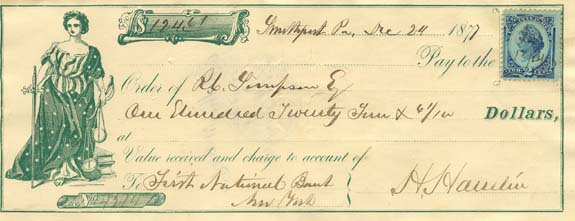 $ 124.61 Smethport Pa, Dec 24 1877
Pay to the
Order of R.C. Simpson Esq
One Hundred Twenty Four & 61/100 Dollars,
at
Value received and charge to account of
To First National Bank H. Hamlin
New York
No
2